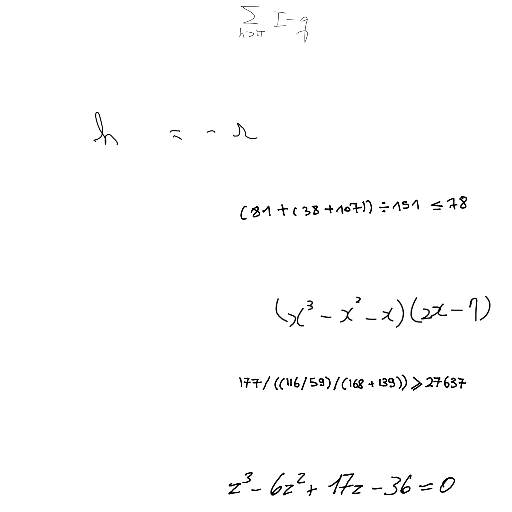 h = - r
(81 + (38 + 107)) ÷ 151 ≤ 78
(x³ - x² - x)(2x - 7)
177/((116/59)/(168 + 139)) ≥ 27637
z³ - 6z² + 17z - 36 = 0